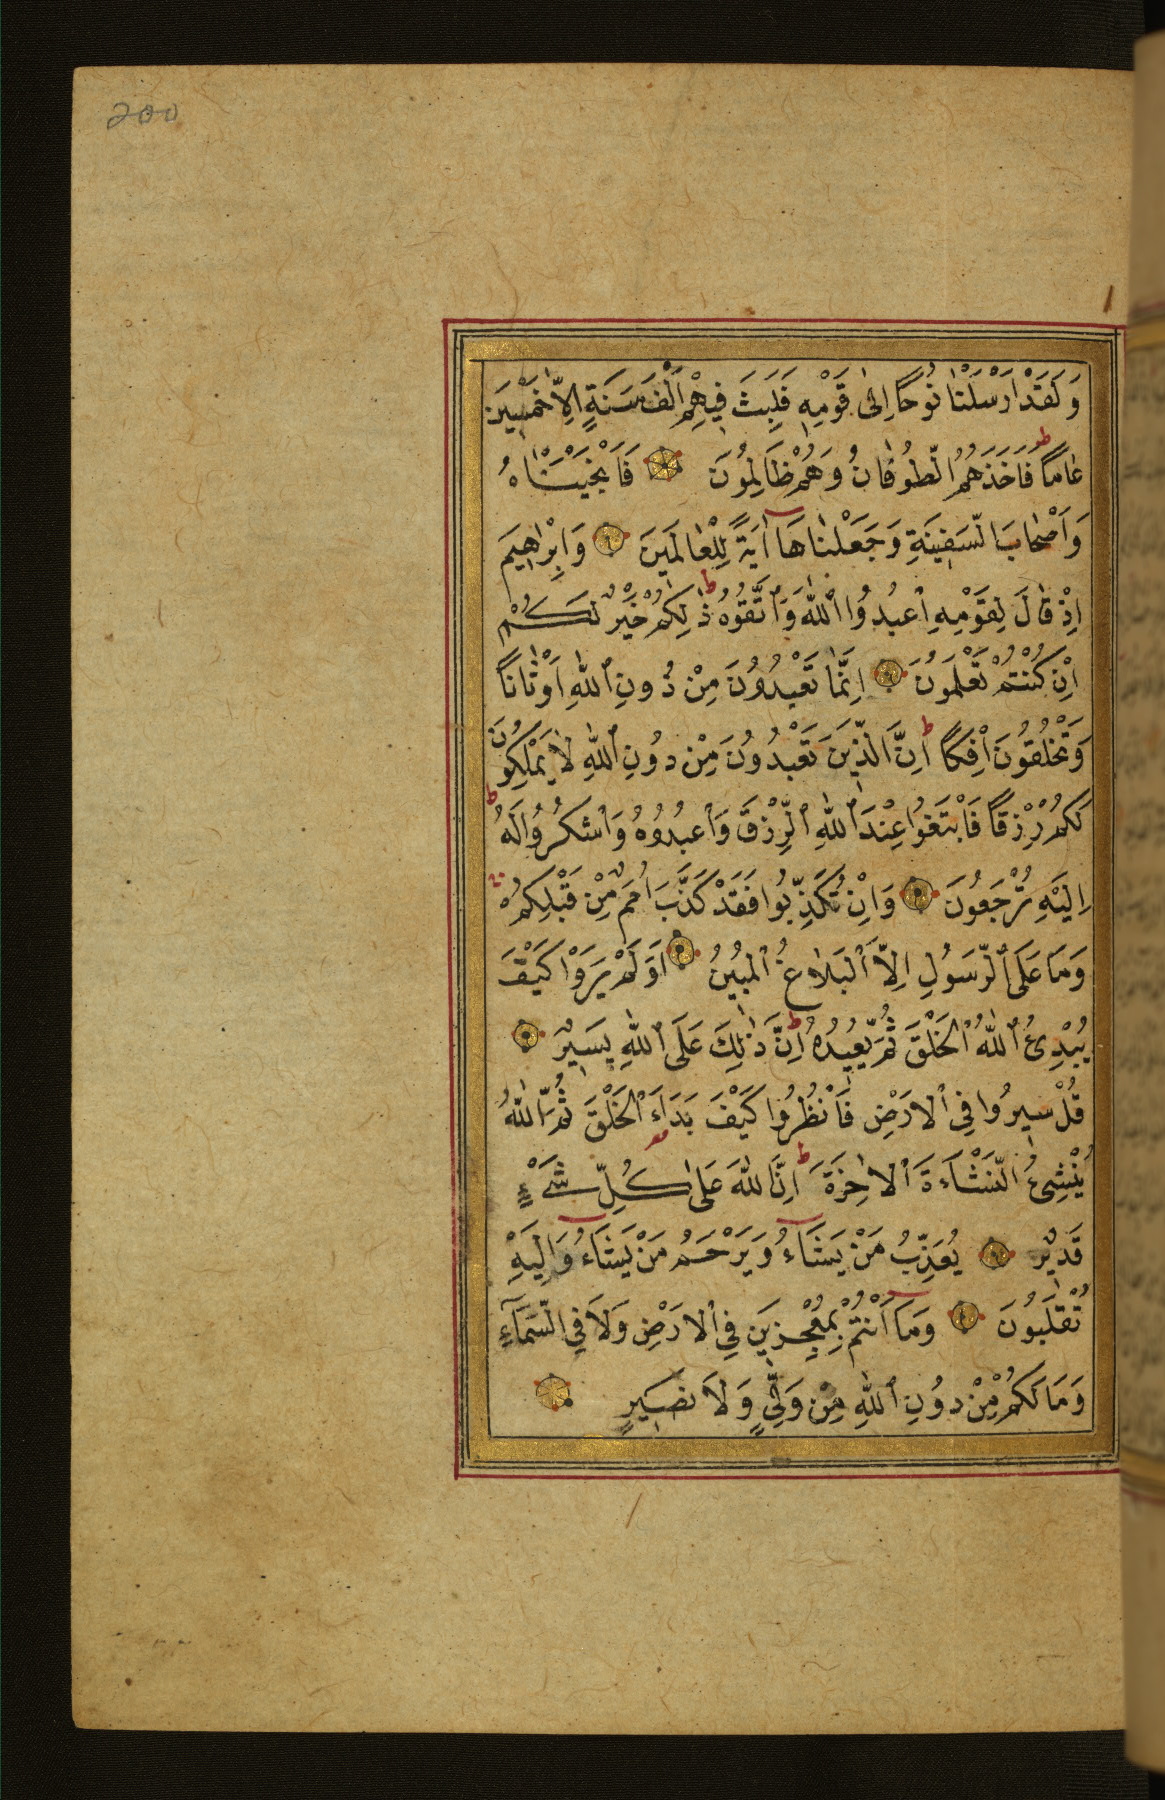 200
وَلَقَدْ اَرْسَلْنَا نُوحًا اِلٰى قَوْمِهٖ فَلَبِثَ فٖيهِمْ اَلْفَ سَنَةٍ اِلَّا خَمْسٖينَ
عَامًا ط فَاَخَذَهُمُ الطُّوفَانُ وَهُمْ ظَالِمُونَ فَاَنْجَيْنَاهُ
وَاَصْحَابَ السَّفٖينَةِ وَجَعَلْنَاهَا اٰيَةً لِلْعَالَمٖينَ وَاِبْرٰهٖيمَ
اِذْ قَالَ لِقَوْمِهِ اعْبُدُوا اللّٰهَ وَاتَّقُوهُ ط ذٰلِكُمْ خَيْرٌ لَكُمْ
اِنْ كُنْتُمْ تَعْلَمُونَ اِنَّمَا تَعْبُدُونَ مِنْ دُونِ اللّٰهِ اَوْثَانًا
وَتَخْلُقُونَ اِفْكًا ط اِنَّ الَّذٖينَ تَعْبُدُونَ مِنْ دُونِ اللّٰهِ لَا يَمْلِكُونَ
لَكُمْ رِزْقًا فَابْتَغُوا عِنْدَ اللّٰهِ الرِّزْقَ وَاعْبُدُوهُ وَاشْكُرُوا لَهُ ط
اِلَيْهِ تُرْجَعُونَ وَاِنْ تُكَذِّبُوا فَقَدْ كَذَّبَ اُمَمٌ مِنْ قَبْلِكُمْ
وَمَا عَلَى الرَّسُولِ اِلَّا الْبَلَاغُ الْمُبٖينُ اَوَلَمْ يَرَوْا كَيْفَ
يُبْدِئُ اللّٰهُ الْخَلْقَ ثُمَّ يُعٖيدُهُ ط اِنَّ ذٰلِكَ عَلَى اللّٰهِ يَسٖيرٌ
قُلْ سٖيرُوا فِي الْاَرْضِ فَانْظُرُوا كَيْفَ بَدَاَ الْخَلْقَ ثُمَّ اللّٰهُ
يُنْشِئُ النَّشْاَةَ الْاٰخِرَةَ ط اِنَّ اللّٰهَ عَلٰى كُلِّ شَيْءٍ
قَدٖيرٌ يُعَذِّبُ مَنْ يَشَاءُ وَيَرْحَمُ مَنْ يَشَاءُ وَاِلَيْهِ
تُقْلَبُونَ وَمَا اَنْتُمْ بِمُعْجِزٖينَ فِي الْاَرْضِ وَلَا فِي السَّمَاءِ
وَمَا لَكُمْ مِنْ دُونِ اللّٰهِ مِنْ وَلِيٍّ وَلَا نَصٖيرٍ